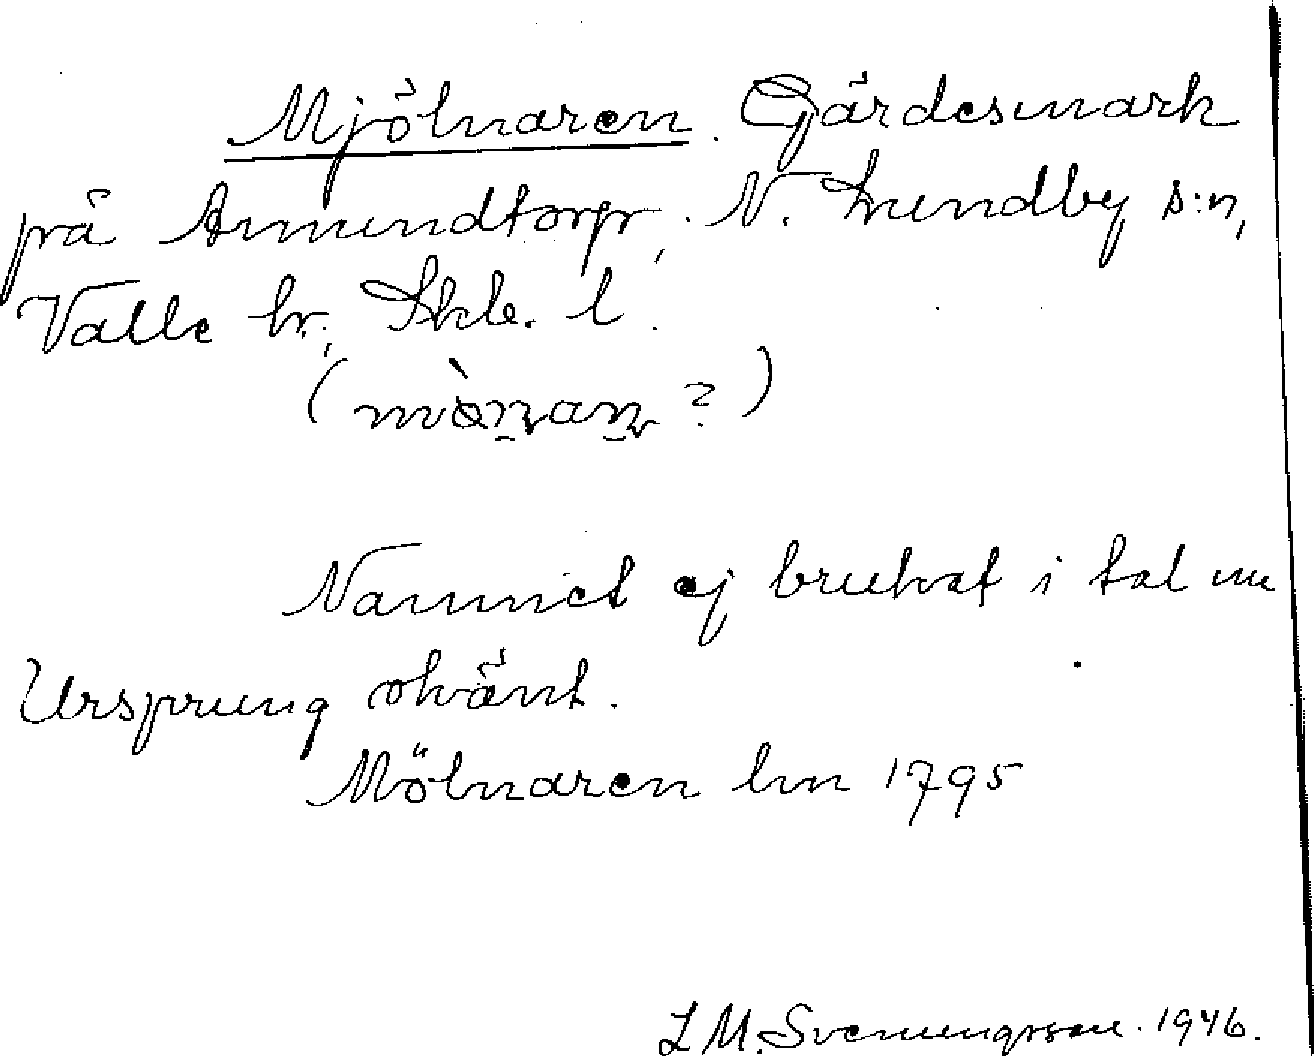 Mjölnaren. Gärdesmark
på Amundtorp, N. Lundby s:n,
Valle hr., Skbg. l.
Namnet ej brukat i tal nu
Ursprung okänt.
Mölnaren lm 1795
L M. Svenungsson. 1946.